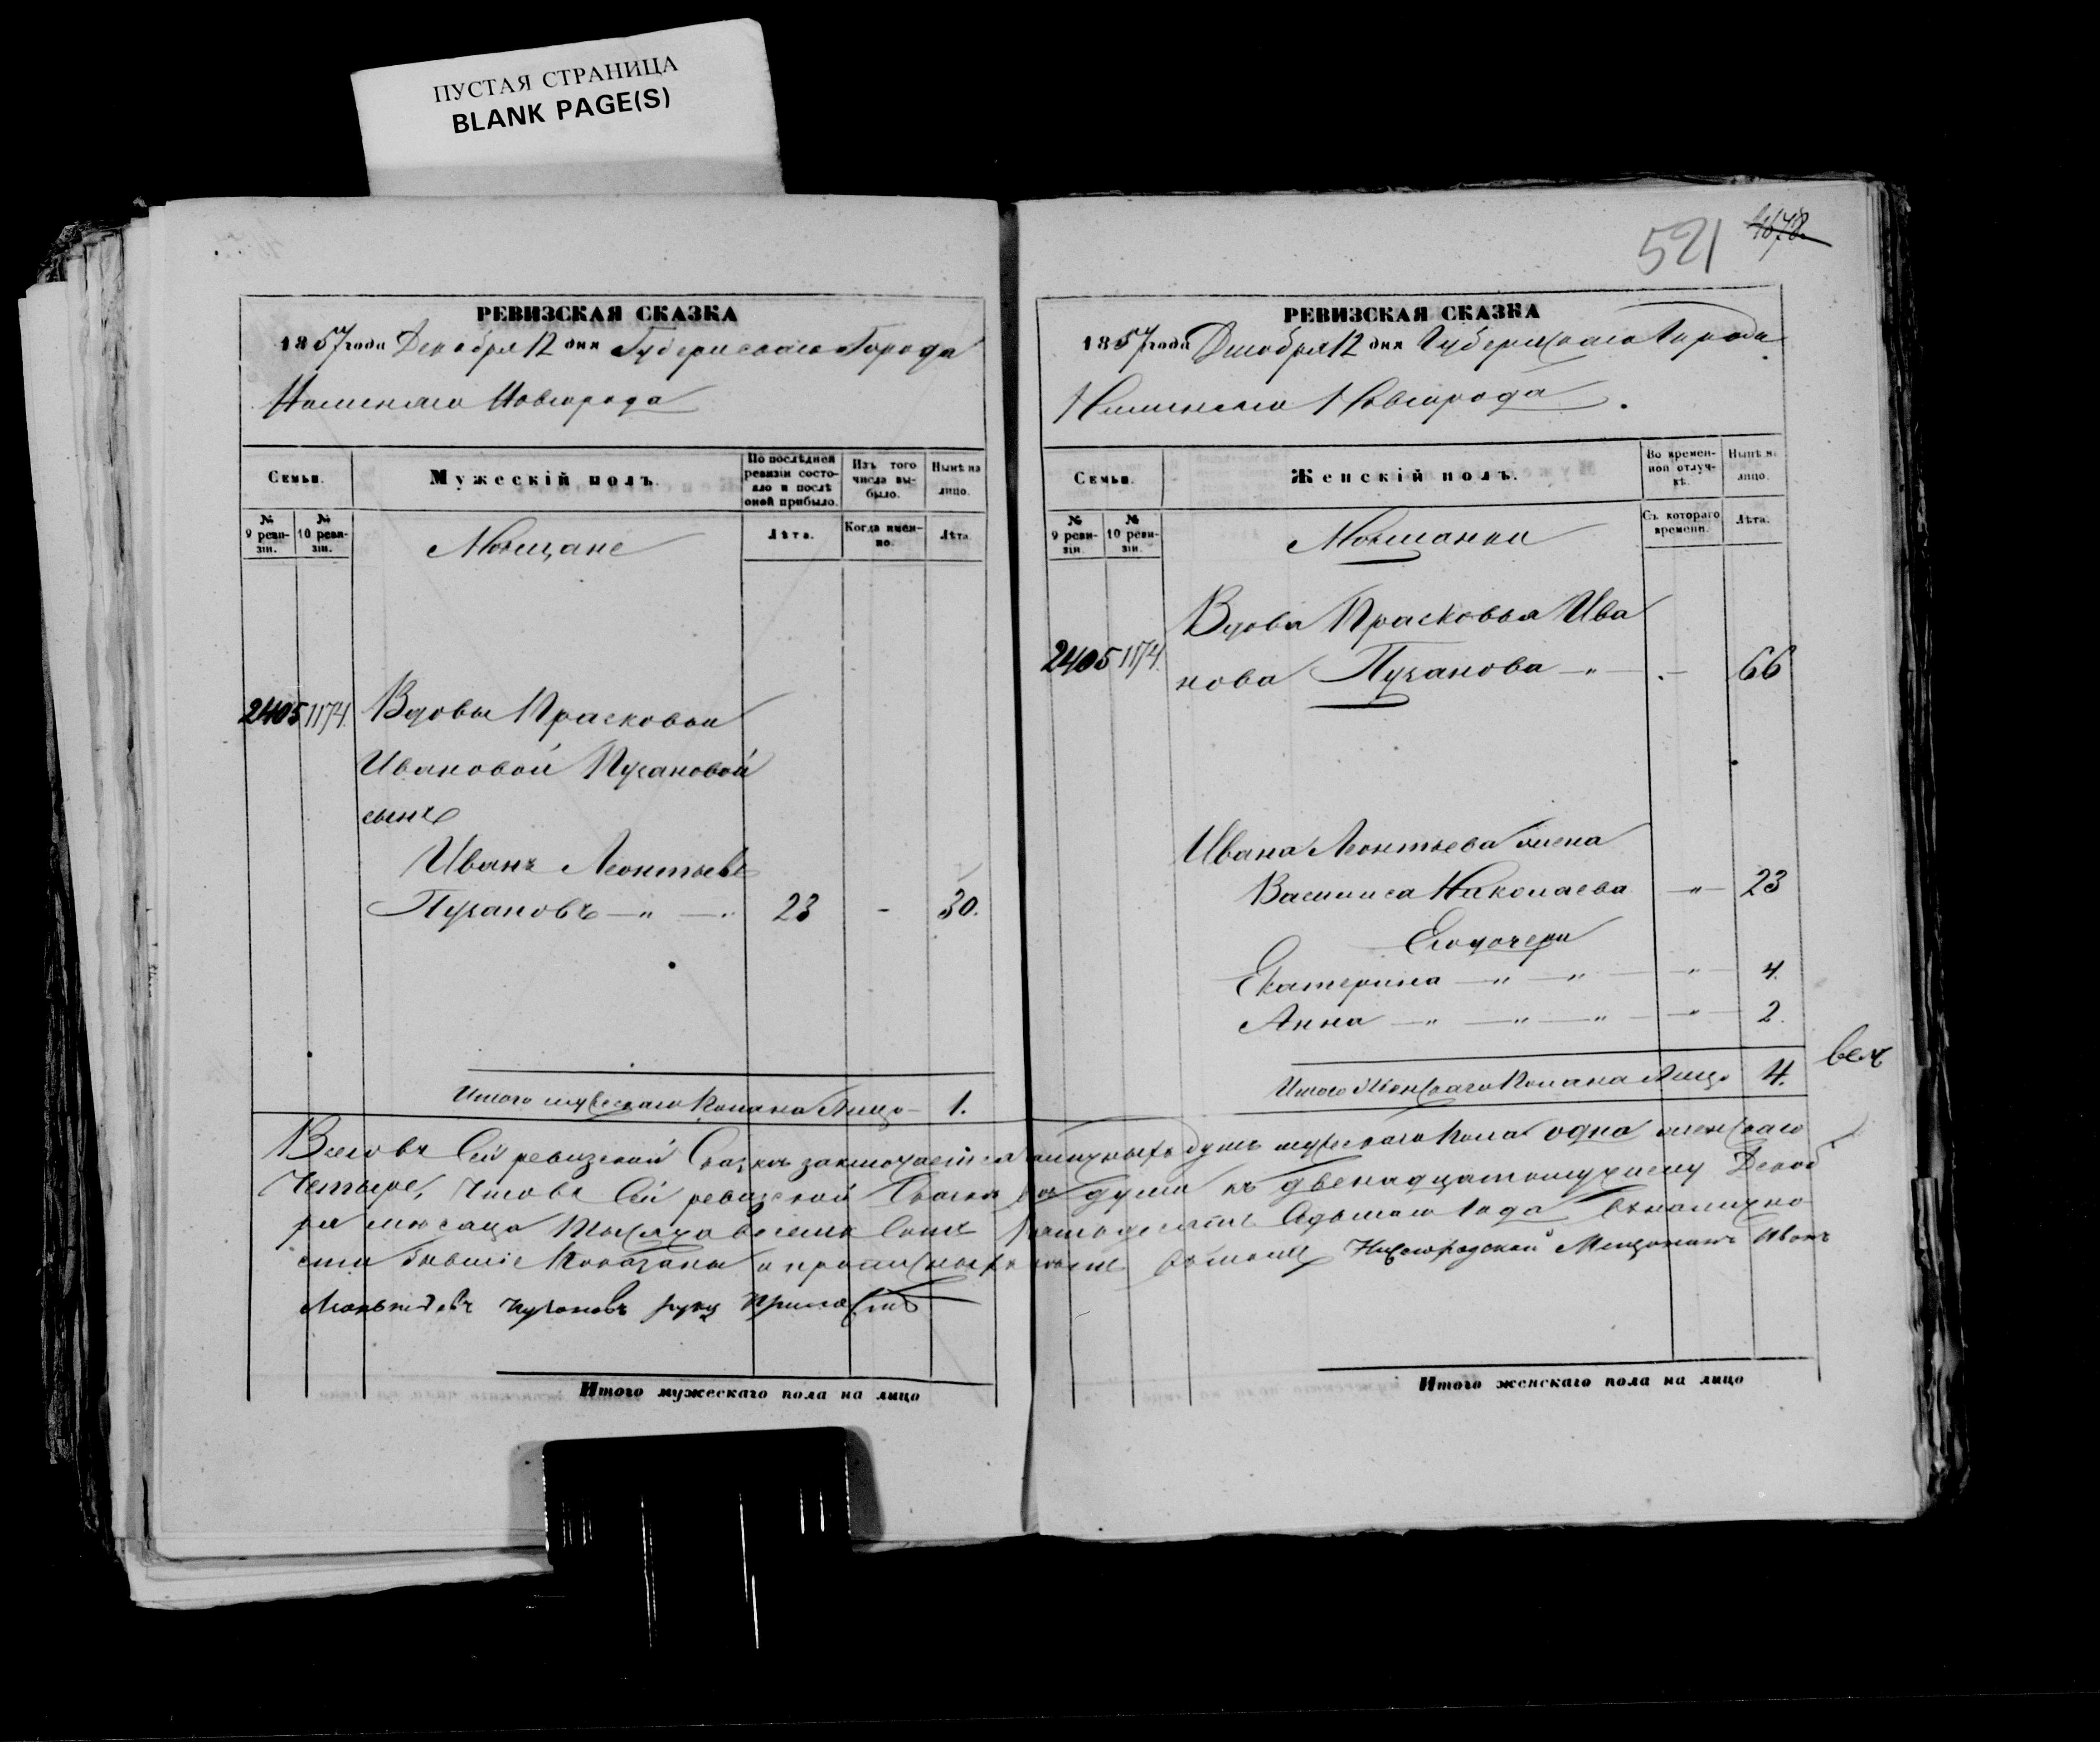 ПУСТАЯ СТРАНИЦА
BLANK PAGE(S)
РЕВИЗСКАЯ СКАЗКА
1857 года Декабря 12 дня Губернскаго Города
Нижняго Новгорода
Семьи.
Мужескій полъ.
По послѣдней ревизіи состояло и послѣ оной прибыло.
Изъ того числа выбыло.
Нынѣ на лицо.
№ 9 ревизіи.
№ 10 ревизіи.
Мѣщане
Лѣта.
Когда именно.
Лѣта.
2405 1174. Вдовы Прасковьи
Ивановой Пузановой
сынъ
Иванъ Леонтьевъ
Пузановъ —„— 23 - 30.
Итого мужескаго пола на лицо — 1.
521 1678
РЕВИЗСКАЯ СКАЗКА
1857 года Декабря 12 дня Губернскаго Города
Нижняго Новгорода.
Семьи.
Женскій полъ.
Во временной отлучкѣ.
Нынѣ на лицо.
№ 9 ревизіи.
№ 10 ревизіи.
Мѣщанки
Съ котораго времени.
Лѣта.
Вдова Прасковья Ива
2405 1174. нова Пузанова —„— . — 66
Ивана Леонтьева жена
Василиса Николаева —„— 23
Его дочери
Екатерина —„—„— „ — 4.
Анна —„—„—„— „ — 2.
Итого Женскаго пола на Лицо 4.
Всего въ Сей ревизской Сказкѣ заключается наличныхъ душъ мужескаго пола одна женскаго
Четыре, Что въ Сей ревизской Сказкѣ всѣ души къ двенадцатому числу Декаб
ря мѣсяца Тысяча восемь Сотъ пятьдесятъ Седьмаго Года въ налично
сти бывшіе Показаны и прописныхъ нѣтъ въ томъ Нижегородской Мещанинъ Иванъ
Леонтьевъ Пузановъ руку приложилъ
Итого мужескаго пола на лицо
Итого женскаго пола на лицо